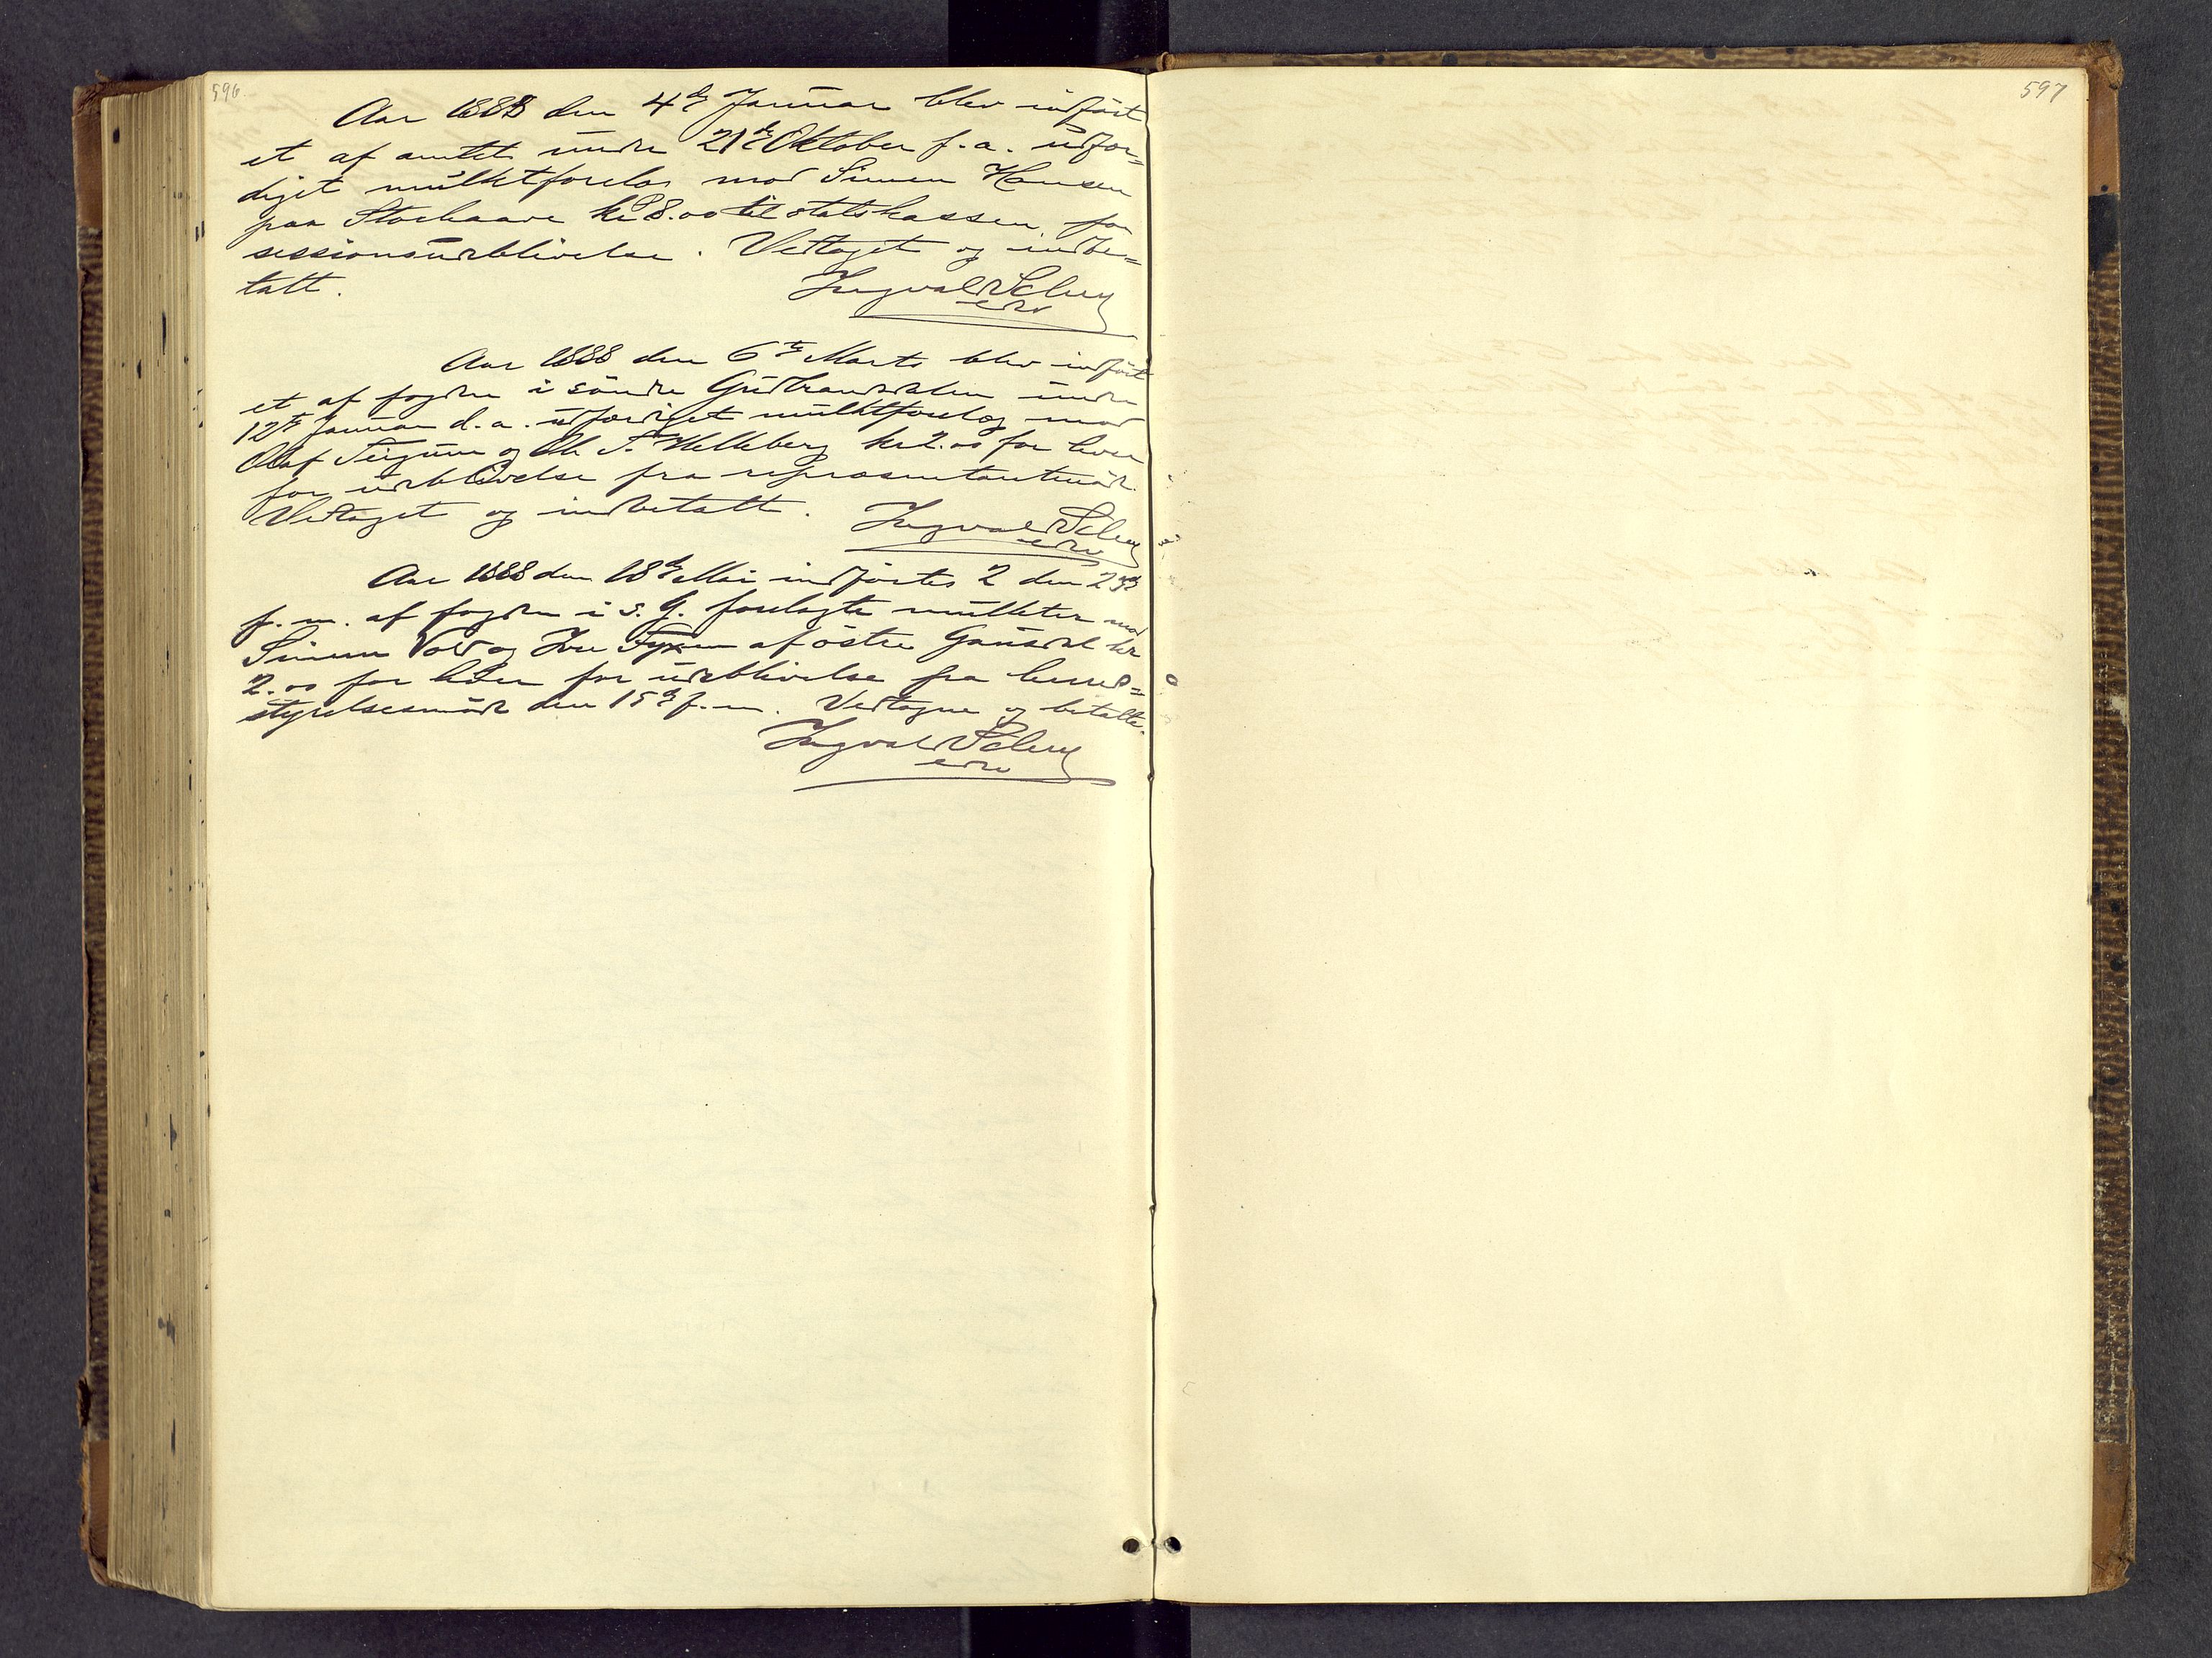 596.
Aar 1888 den 4de Januar blev indført
et af amtet under 21de Oktober f. a. udfær=
diget mulktforelæg mod Simen Hansen
paa Storhaave kr 8.00 til statskassen for
sessionsudeblivelse. Vedtaget og indbe=
talt.
Ingvald
edsv
Aar 1888 den 6te Marts blev indført
et af fogden i søndre Gudbrandsdalen under
12te Januar d. a. udfærdiget mulktforelæg mod
Olaf og Ole S. Helleberg kr 2.00 for hver
for udeblivelse fra repræsentantmøde.
Vedtaget og indbetalt.
Ingvald
edsv
Aar 1888 den 18de Mai indførtes 2 den 23de
f. m. af fogden i s. G. forelagte mulkter mod
Simen Vold og Iver af østre Gausdal kr
2.00 for hver for udeblivelse fra herreds=
styrelsesmøde den 15de f. m. Vedtagne og betalte.
Ingvald
edsv
597